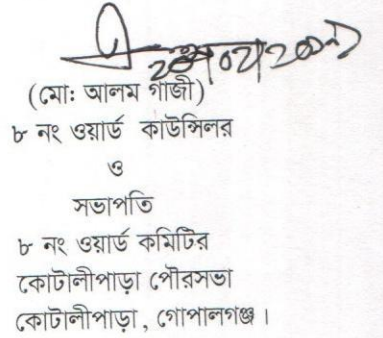 (মো: আলম গাজী)
৮ নং ওয়ার্ড কাউন্সিলর
ও
সভাপতি
৮ নং ওয়ার্ড কমিটির
কোটালীপাড়া পৌরসভা
কোটালীপাড়া, গোপালগঞ্জ।